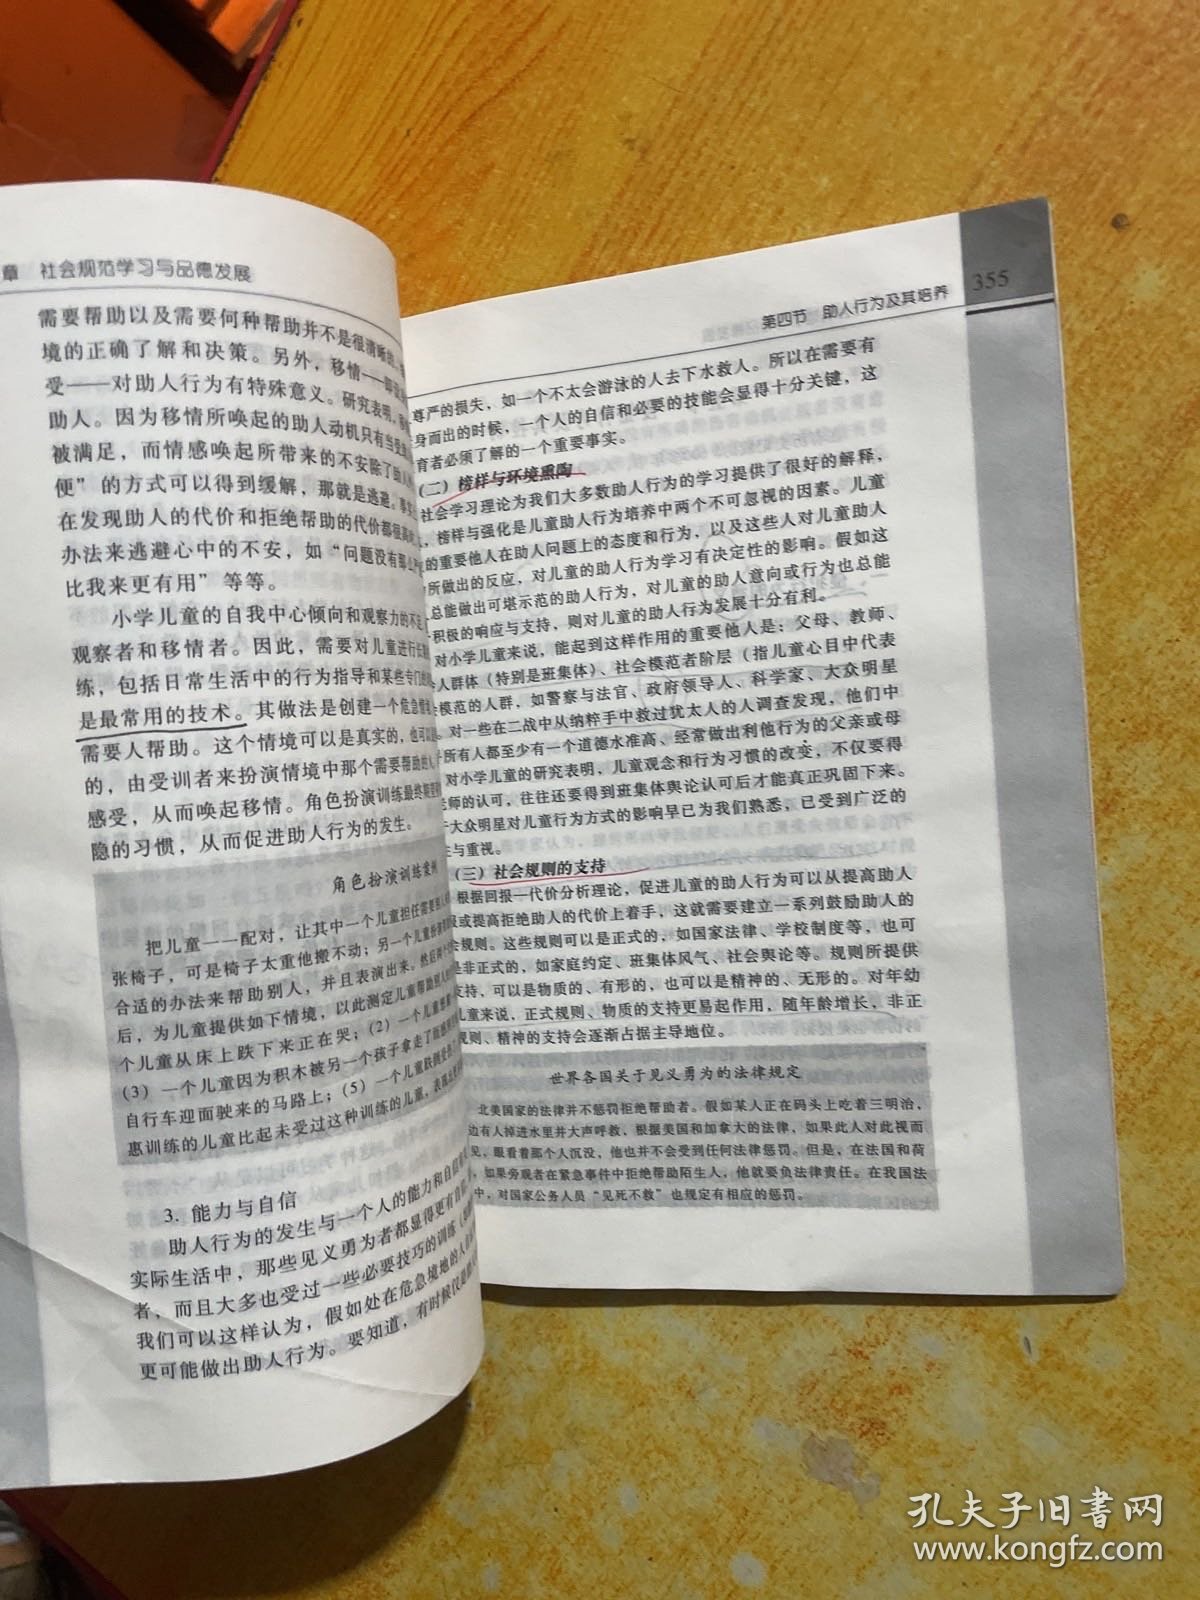 章 社会规范学习与品德发展
需要帮助以及需要何种帮助并不是很清晰的
境的正确了解和决策。另外，移情——即设
受——对助人行为有特殊意义。研究表明，
助人。因为移情所唤起的助人动机只有当受
被满足，而情感唤起所带来的不安除了助人
便”的方式可以得到缓解，那就是逃避。事实
在发现助人的代价和拒绝帮助的代价都很高
办法来逃避心中的不安，如“问题没有那么严
比我来更有用”等等。
小学儿童的自我中心倾向和观察力的不足
观察者和移情者。因此，需要对儿童进行
练，包括日常生活中的行为指导和某些专门
是最常用的技术。其做法是创建一个危急情
需要人帮助。这个情境可以是真实的，也可以
的，由受训者来扮演情境中那个需要帮助
感受，从而唤起移情。角色扮演训练最终期望
隐的习惯，从而促进助人行为的发生。
角色扮演训练案例
把儿童一一配对，让其中一个儿童担任需要别人
张椅子，可是椅子太重他搬不动；另一个儿童扮演
合适的办法来帮助别人，并且表演出来。然后两个
后，为儿童提供如下情境，以此测定儿童帮助别人
个儿童从床上跌下来正在哭；（2）一个儿童想
（3）一个儿童因为积木被另一个孩子拿走了而
自行车迎面驶来的马路上；（5）一个儿童跌倒
惠训练的儿童比起未受过这种训练的儿童，表现出
3. 能力与自信
助人行为的发生与一个人的能力和自信
实际生活中，那些见义勇为者都显得更有自
者，而且大多也受过一些必要技巧的训练（
我们可以这样认为，假如处在危急境地的人
更可能做出助人行为。要知道，有时候仅
第四节 助人行为及其培养
355
尊严的损失，如一个不太会游泳的人去下水救人。所以在需要有
身而出的时候，一个人的自信和必要的技能会显得十分关键，这
育者必须了解的一个重要事实。
（二）榜样与环境熏陶
社会学习理论为我们大多数助人行为的学习提供了很好的解释，
，榜样与强化是儿童助人行为培养中两个不可忽视的因素。儿童
的重要他人在助人问题上的态度和行为，以及这些人对儿童助人
所做出的反应，对儿童的助人行为学习有决定性的影响。假如这
总能做出可堪示范的助人行为，对儿童的助人意向或行为也总能
积极的响应与支持，则对儿童的助人行为发展十分有利。
对小学儿童来说，能起到这样作用的重要他人是：父母、教师、
人群体（特别是班集体）、社会模范者阶层（指儿童心目中代表
模范的人群，如警察与法官、政府领导人、科学家、大众明星
。对一些在二战中从纳粹手中救过犹太人的人调查发现，他们中
所有人都至少有一个道德水准高、经常做出利他行为的父亲或母
对小学儿童的研究表明、儿童观念和行为习惯的改变，不仅要得
老师的认可，往往还要得到班集体舆论认可后才能真正巩固下来。
大众明星对儿童行为方式的影响早已为我们熟悉，已受到广泛的
与重视。
（三）社会规则的支持
根据回报—代价分析理论，促进儿童的助人行为可以从提高助人
报或提高拒绝助人的代价上着手，这就需要建立一系列鼓励助人的
会规则。这些规则可以是正式的，如国家法律、学校制度等，也可
是非正式的，如家庭约定、班集体风气、社会舆论等。规则所提供
支持，可以是物质的、有形的，也可以是精神的、无形的。对年幼
儿童来说，正式规则、物质的支持更易起作用，随年龄增长，非正
规则、精神的支持会逐渐占据主导地位。
世界各国关于见义勇为的法律规定
北美国家的法律并不惩罚拒绝帮助者。假如某人正在码头上吃着三明治，
边有人掉进水里并大声呼救，根据美国和加拿大的法律，如果此人对此视而
见，眼看着那个人沉没，他也并不会受到任何法律惩罚。但是，在法国和荷
，如果旁观者在紧急事件中拒绝帮助陌生人，他就要负法律责任。在我国法
中，对国家公务人员“见死不救”也规定有相应的惩罚。
孔夫子旧书网
www.kongfz.com